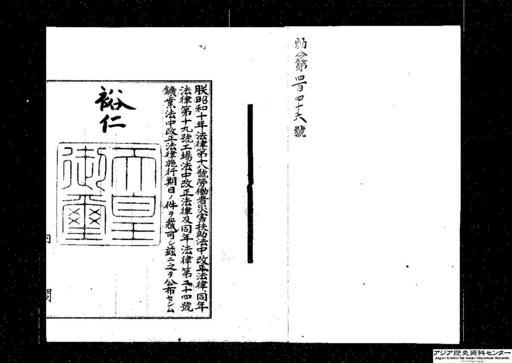 勅令第四百四十六號
朕昭和十年法律第十八號勞働者災害扶助法中改正法律、同年
法律第十九號工場法中改正法律及同年法律第五十四號
鑛業法中改正法律施行期日ノ件ヲ裁可シ玆ニ之ヲ公布セシム
裕仁
天皇
御璽
内
閣
アジア歴史資料センター
Japan Center for Asian Historical Records